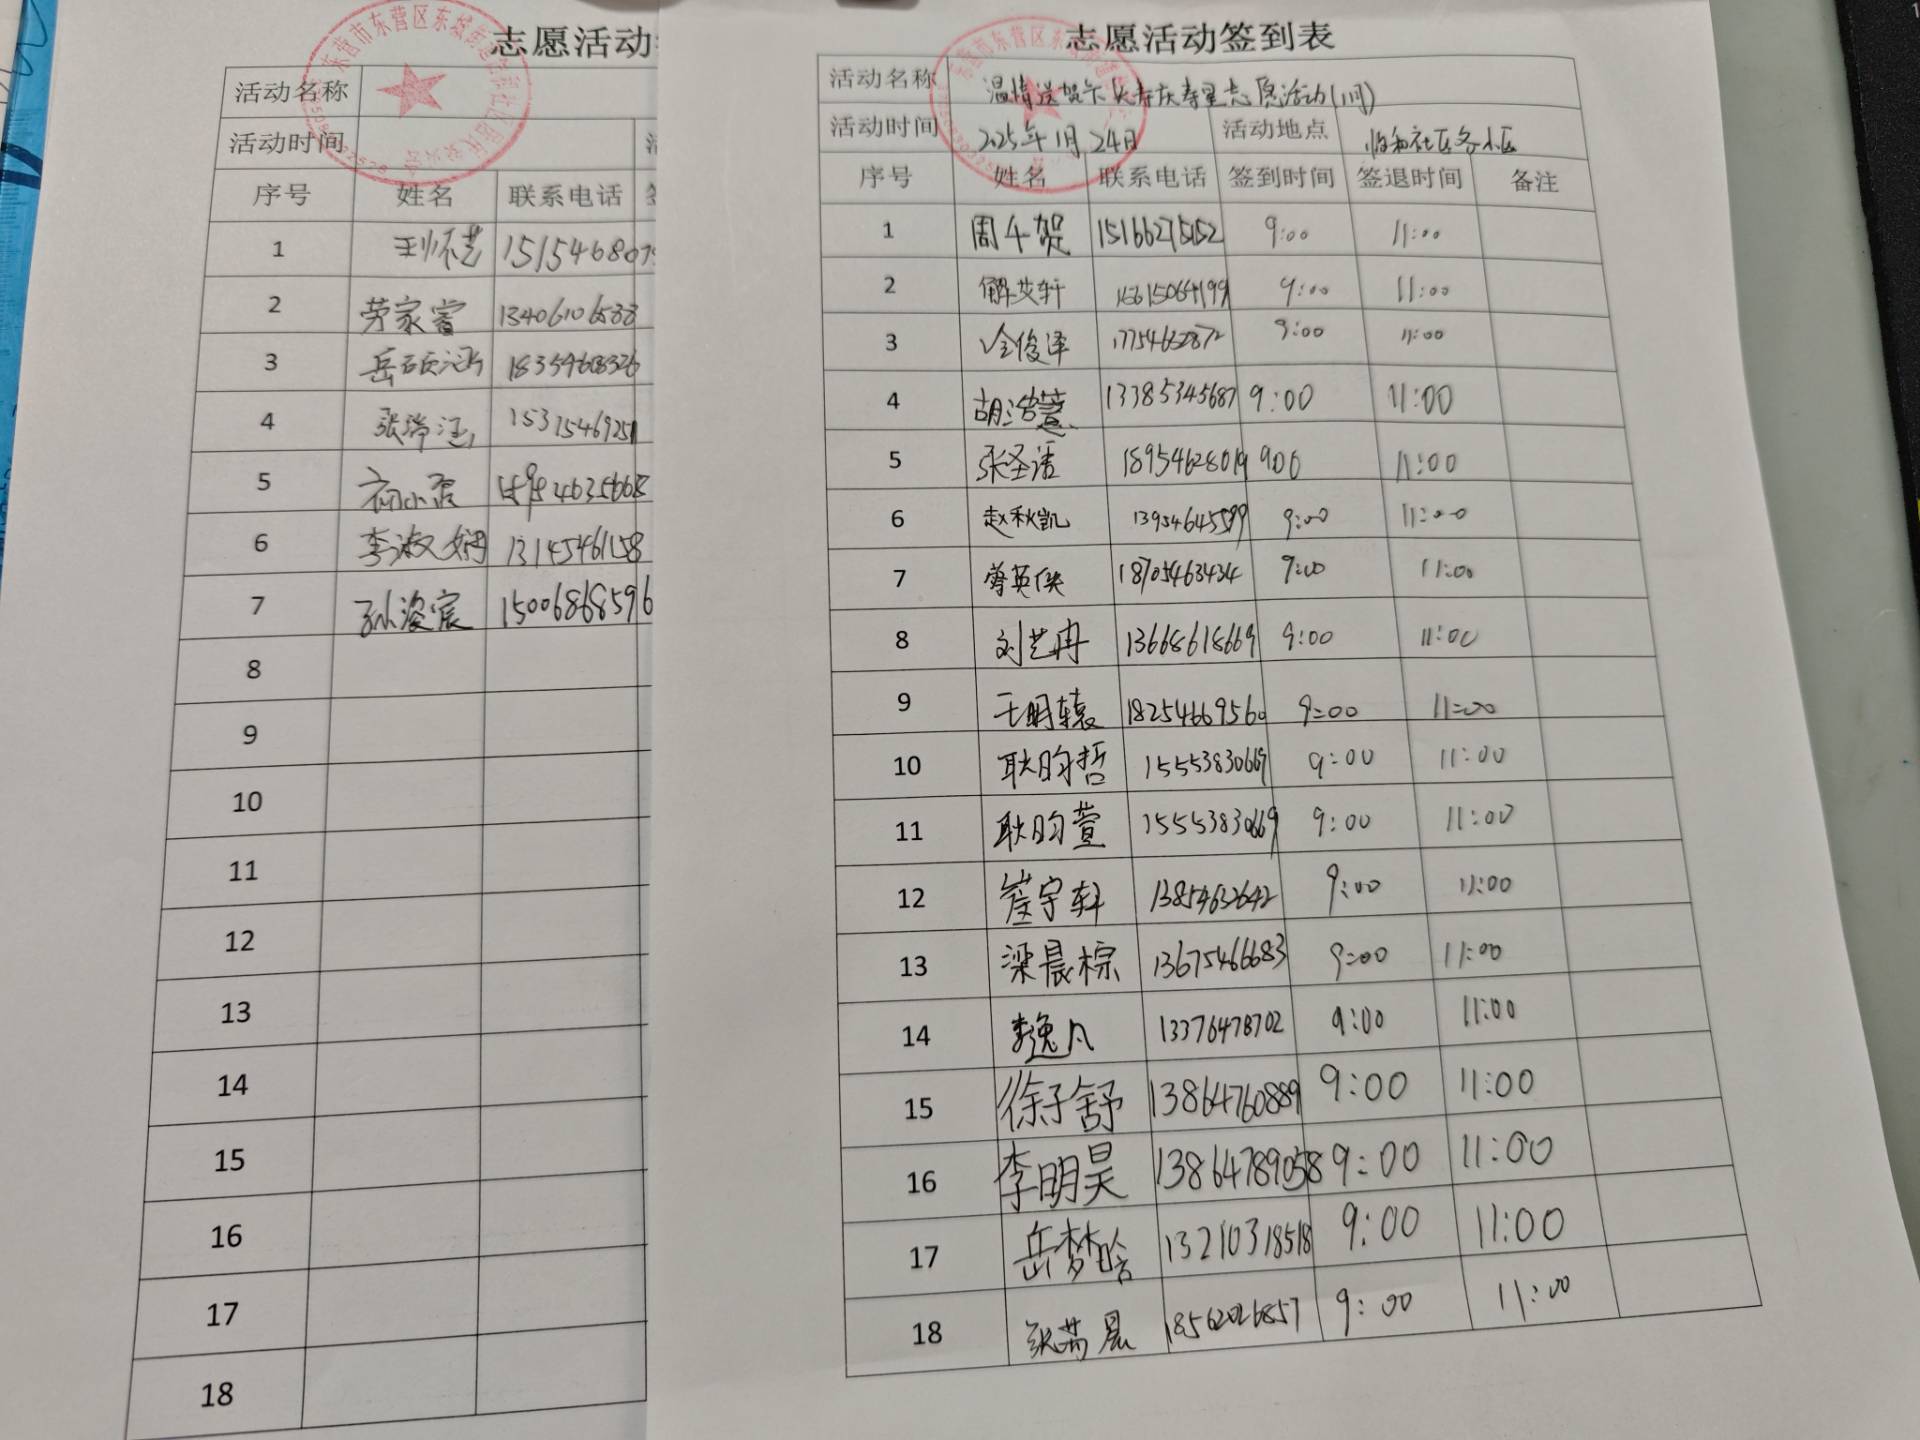 志愿活动
活动名称
活动时间
序号 姓名 联系电话
1
2 劳家睿 13406106538
3 18354608326
4 15315469251
5
6 李淑娴
7 15006868596
8
9
10
11
12
13
14
15
16
17
18
志愿活动签到表
活动名称 温情送贺卡 长寿庆寿星志愿活动(1月)
活动时间 2025年1月24日 活动地点 怡和社区各小区
序号 姓名 联系电话 签到时间 签退时间 备注
1 周千贺 15166275152 9:00 11:00
2 解艾轩 15615064199 9:00 11:00
3 俊泽 17754632872 9:00 11:00
4 胡浩萱 13385345687 9:00 11:00
5 张圣洁 18954628019 900 11:00
6 赵秋凯 13954645599 9:00 11:00
7 英侠 18705463434 9:00 11:00
8 刘艺冉 13668618669 9:00 11:00
9 王明辕 18254669560 9:00 11:00
10 耿昀哲 15553830669 9:00 11:00
11 耿昀萱 15553830669 9:00 11:00
12 崔宇轩 13854632642 9:00 11:00
13 梁晨棕 13675466683 9:00 11:00
14 李逸凡 13376478702 9:00 11:00
15 徐子舒 13864760889 9:00 11:00
16 李明昊 13864789058 9:00 11:00
17 岳梦晗 13210318518 9:00 11:00
18 18562026857 9:00 11:00